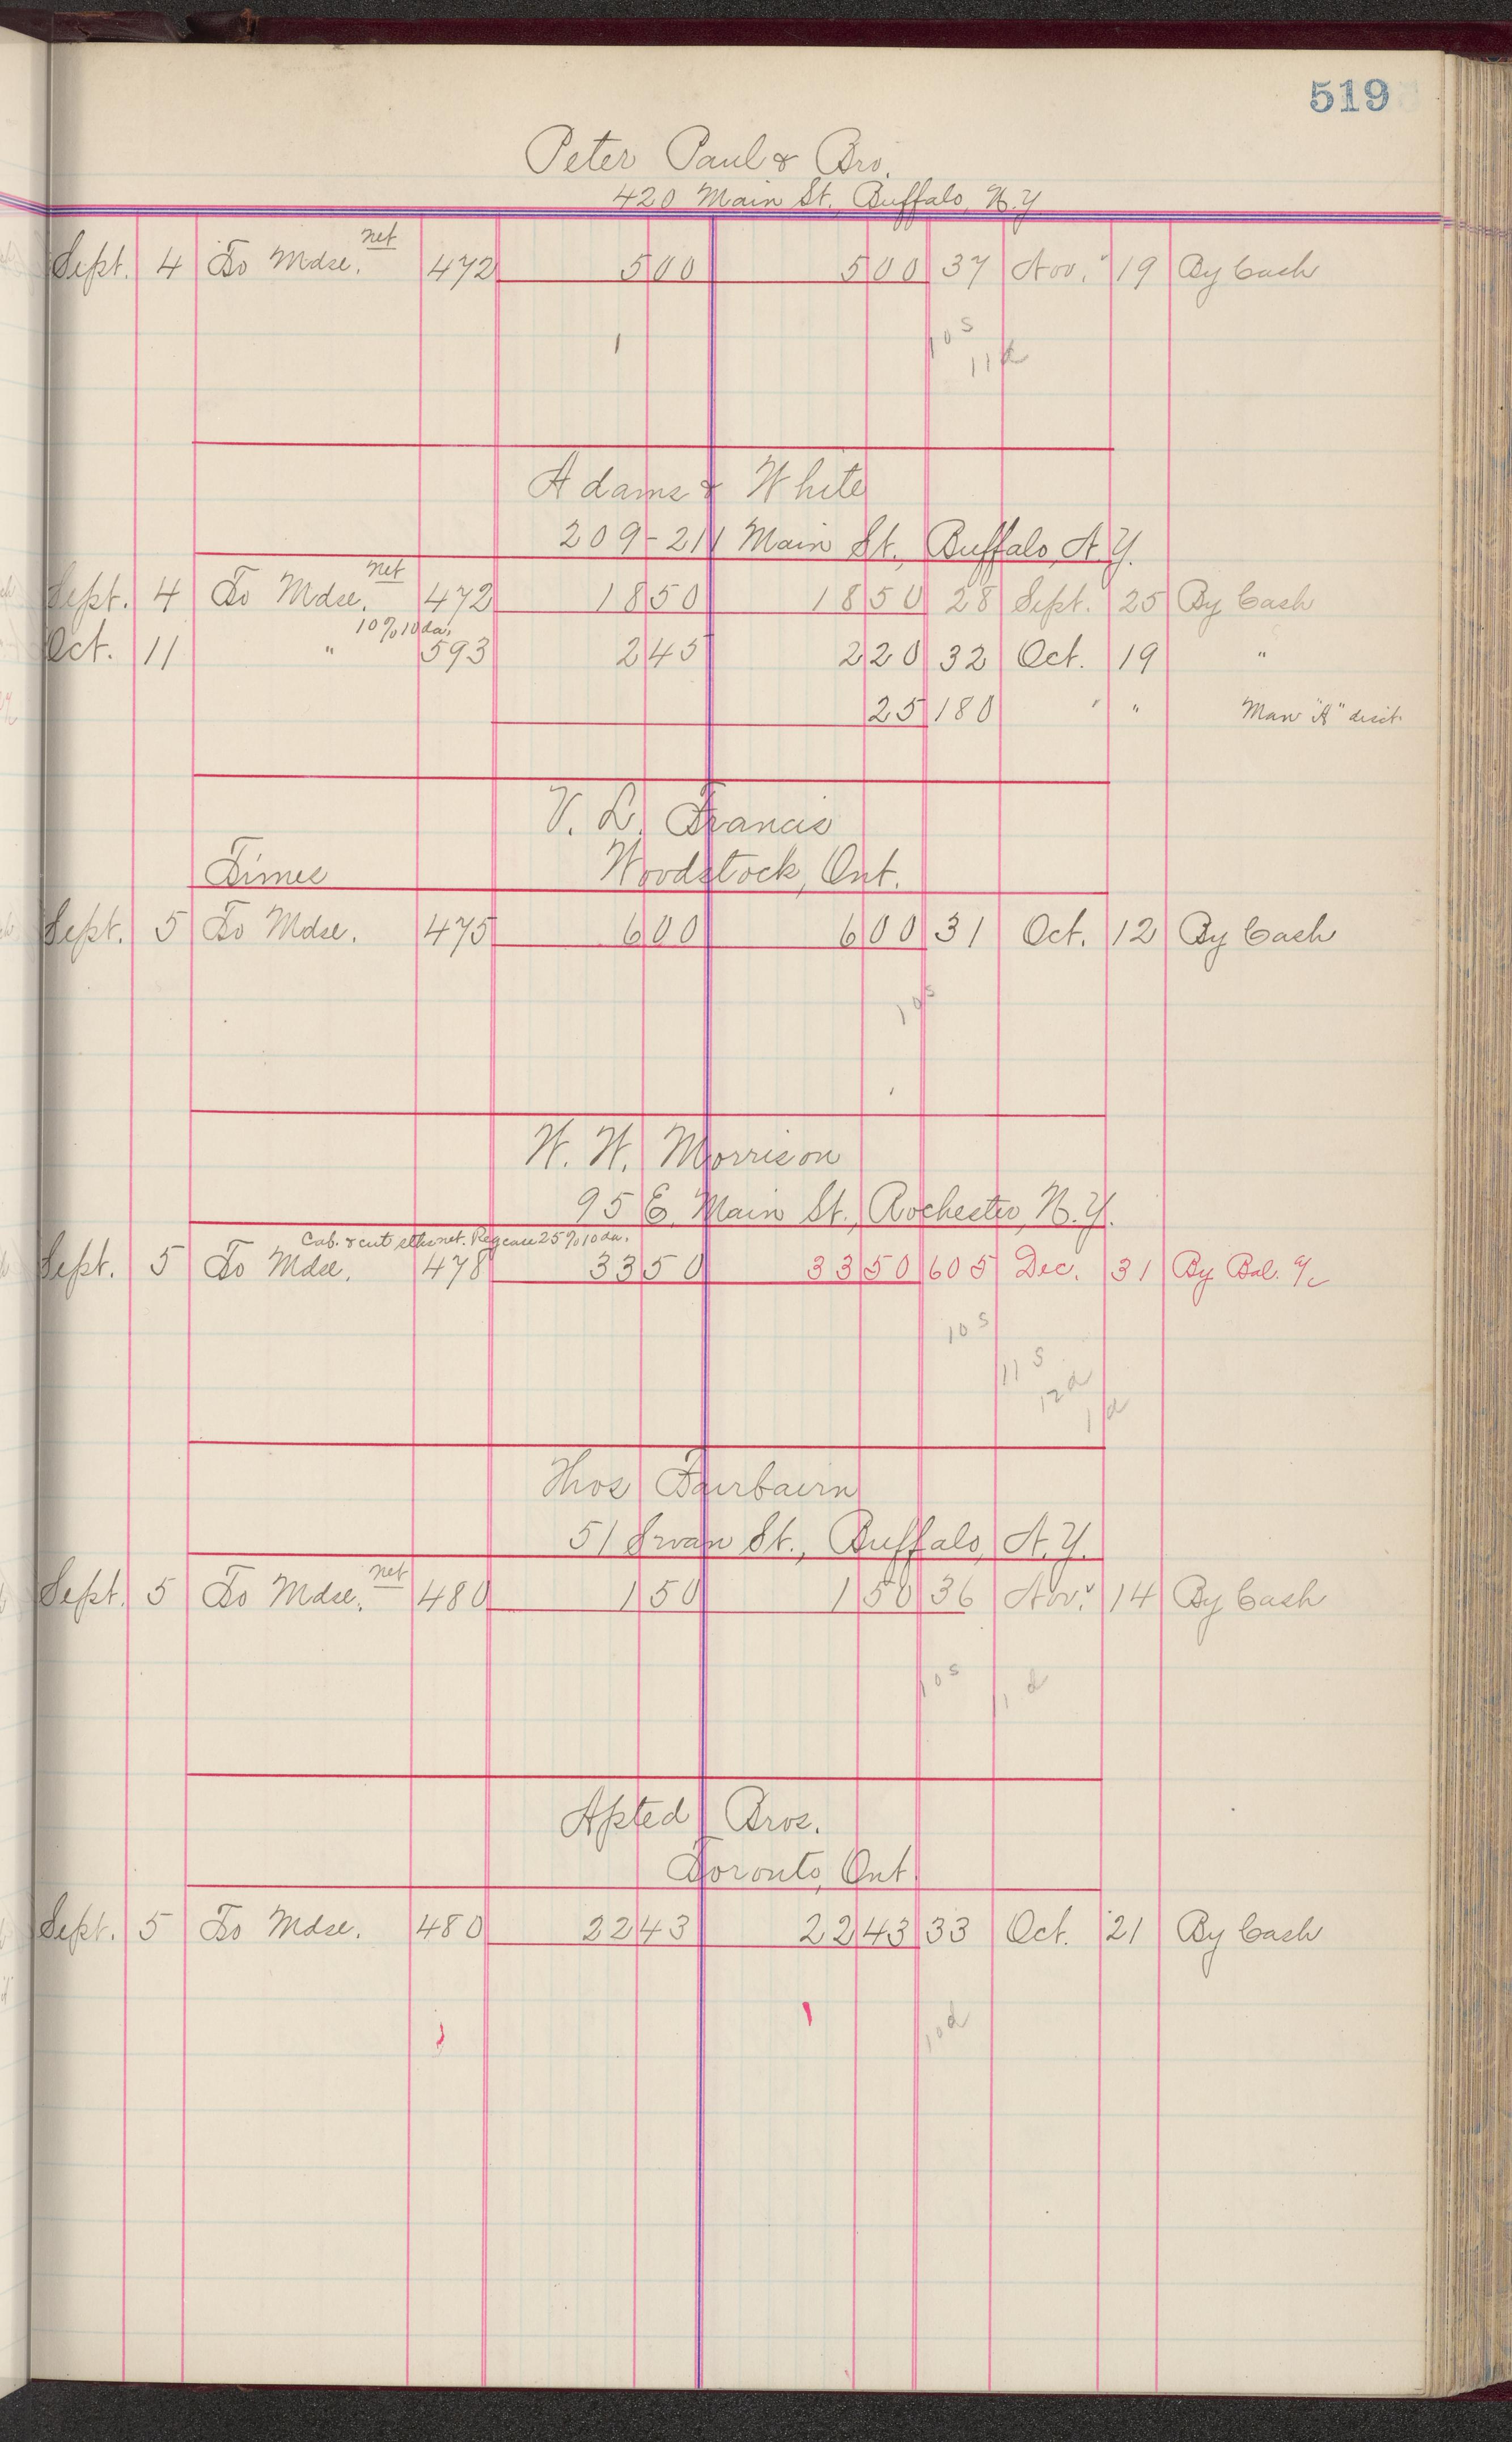 519
Peter Paul & Bro.
420 Main St., Buffalo, N.Y
net
Sept. 4 To Mdse. 472 5 00 5 00 37 Nov. 19 By Cash
10 s
11 d
Adams & White
209-211 Main St., Buffalo, N.Y.
net
Sept. 4 To Mdse. 472 18 50 18 50 28 Sept. 25 By Cash
10% 10 da.
Oct. 11 " 593 2 45 2 20 32 Oct. 19 "
25 180 " " Man "A" disct.
V. L. Francis
Times Woodstock, Ont.
Sept. 5 To Mdse. 475 6 00 6 00 31 Oct. 12 By Cash
10 s
W. W. Morrison
95 E. Main St., Rochester, N.Y.
Cab. & cut net. Reg case 25% 10 da.
Sept. 5 To Mdse. 478 33 50 33 50 605 Dec. 31 By Bal. a/c
10 s
11 s
12 d
1 d
Thos Fairbairn
51 Swan St., Buffalo, N.Y.
net
Sept. 5 To Mdse. 480 1 50 1 50 36 Nov. 14 By Cash
10 s 11 d
Apted Bros.
Toronto, Ont
Sept. 5 To Mdse. 480 22 43 22 43 33 Oct. 21 By Cash
10 d